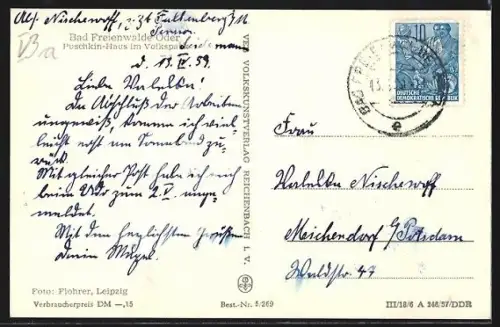 Abs. Nischewoff, z. Zt. Falkenberg/M
Bad Freienwalde Oder
Puschkin-Haus im Volkspark
d. 13. IV. 59.
Liebe Valeska!
Da Abschluß der Arbeiten
ungewiß, komme ich viel-
leicht erst am Sonnabend zu-
rück.
Mit gleicher Post habe ich mich
beim zum 2. V. ange-
meldet.
Mit den herzlichsten Grüßen
Dein
Foto: Flohrer, Leipzig
Verbraucherpreis DM —,15
Best.-Nr. 5/269
VEB VOLKSKUNSTVERLAG REICHENBACH I. V.
10
DEUTSCHE
DEMOKRATISCHE REPUBLIK
BAD FREIENWALDE
e
Frau
Valeska Nischewoff
Michendorf b/Potsdam
Waldstr. 47
III/18/6 A 246/57/DDR